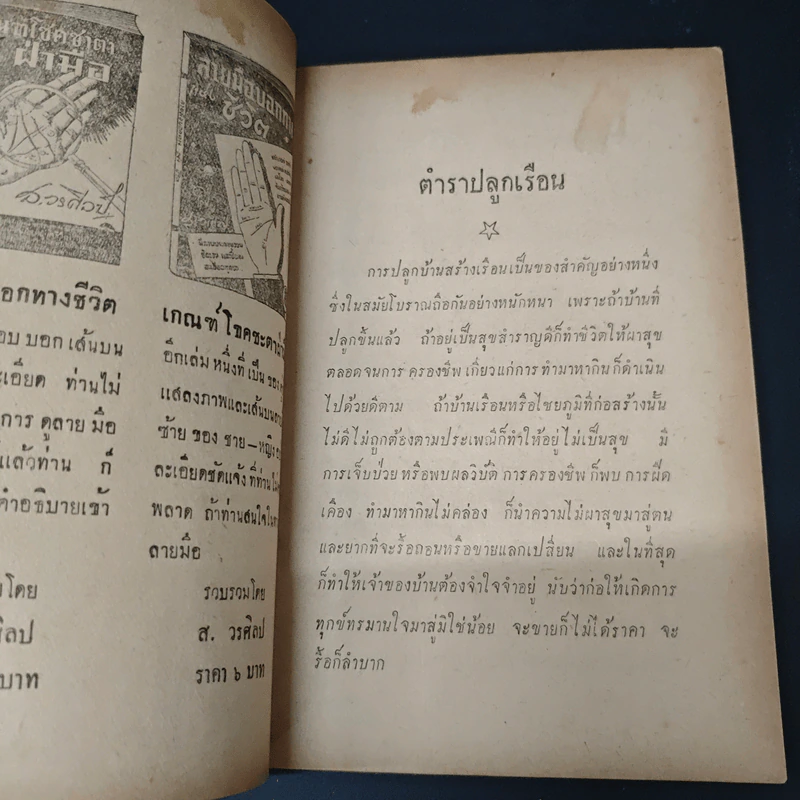 โชคชาตา
ฝ่ามือ
ส.วรศิลป์
อกทางชีวิต
อบ บอก เส้นบน
ะเอียด ท่านไม่
การ ดูลาย มือ
แล้วท่าน ก็
คำอธิบายเข้า
มโดย
ศิลป
บาท
ชีวิต
เกณฑ์โชคชะตา
อีกเล่ม หนึ่งที่ เป็น ของ
แสดงภาพและเส้นบน
ซ้าย ของ ชาย–หญิง
ละเอียดชัดแจ้ง ที่ท่าน
พลาด ถ้าท่านสนใจใน
ลายมือ
รวบรวมโดย
ส. วรศิลป
ราคา ๖ บาท
ตำราปลูกเรือน
การปลูกบ้านสร้างเรือนเป็นของสำคัญอย่างหนึ่ง
ซึ่งในสมัยโบราณถือกันอย่างหนักหนา เพราะถ้าบ้านที่
ปลูกขึ้นแล้ว ถ้าอยู่เป็นสุขสำราญดีก็ทำชีวิตให้ผาสุข
ตลอดจนการ ครองชีพ เกี่ยวแก่การ ทำมาหากิน ก็ดำเนิน
ไปด้วยดีตาม ถ้าบ้านเรือนหรือไชยภูมิที่ก่อสร้างนั้น
ไม่ดีไม่ถูกต้องตามประเพณีก็ทำให้อยู่ไม่เป็นสุข มี
การเจ็บป่วย หรือพบผลวิบัติ การครองชีพ ก็พบ การฝืด
เคือง ทำมาหากินไม่คล่อง ก็นำความไม่ผาสุขมาสู่ตน
และยากที่จะรื้อถอนหรือขายแลกเปลี่ยน และในที่สุด
ก็ทำให้เจ้าของบ้านต้องจำใจจำอยู่ นับว่าก่อให้เกิดการ
ทุกข์ทรมานใจมาสู่มิใช่น้อย จะขายก็ไม่ได้ราคา จะ
รื้อก็ลำบาก